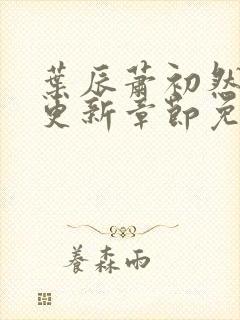 葉辰蕭初然
更新章節免
養森雨